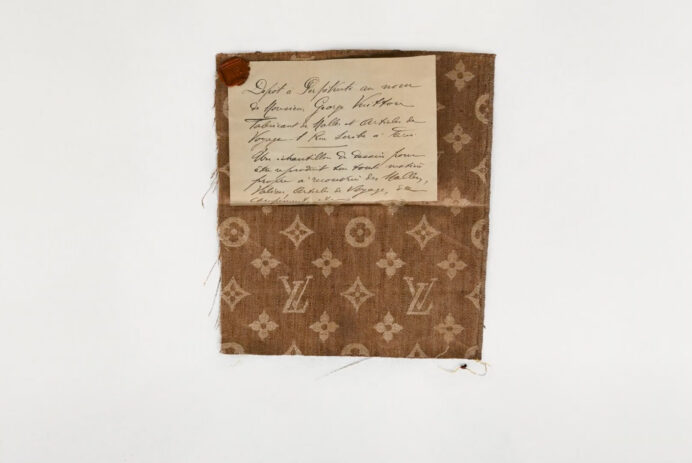 Dépôt à Perpétuité au nom
de Monsieur George Vuitton
Fabricant de Malles et Articles de
Voyage 1 Rue Scribe à Paris
Un échantillon de dessin pour
être reproduit sur toute matière
propre à recouvrir des Malles,
Valises, Articles de Voyage, de
campement
LV
LV